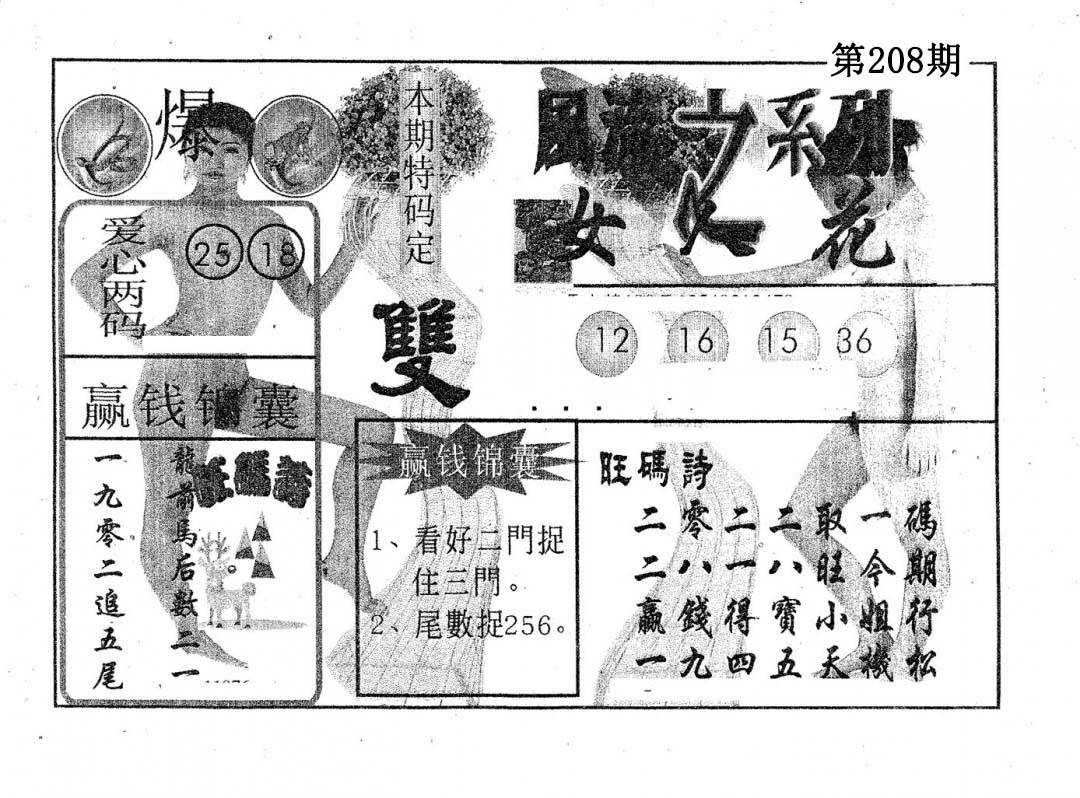 第208期
爆
本期特码定
雙
系列
女
花
爱心两码
25 18
12 16 15 36
赢钱锦囊
旺碼詩
龍前馬后數二一
一九零二追五尾
赢钱锦囊
1、看好二門捉
住三門。
2、尾數捉256。
旺碼詩
二零二二取一碼
二八一八旺今期
贏錢得寶小姐行
一九四五天機松